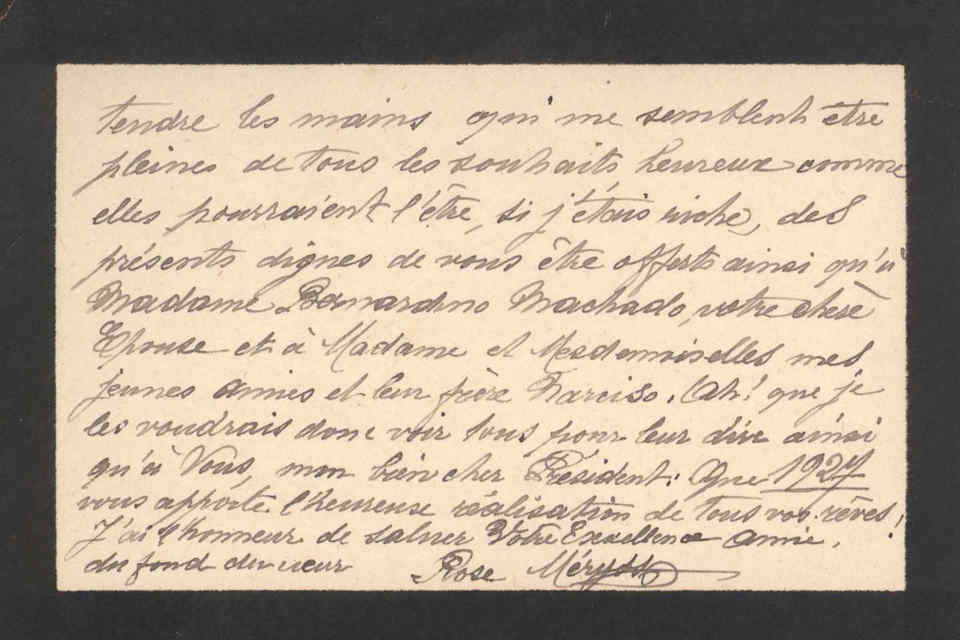 tendre les mains qui me semblent être
pleines de tous les souhaits heureux comme
elles pourraient l'être, si j'étais riche, des
présents dignes de vous être offerts ainsi qu'à
Madame Bernardino Machado, votre chère
Epouse et à Madame et Mesdemoiselles mes
jeunes amies et leur frère Narciso. Ah! que je
les voudrais donc voir tous pour leur dire ainsi
qu'à Vous, mon bien cher Président: Que 1927
vous apporte l'heureuse réalisation de tous vos rêves!
J'ai l'honneur de saluer Votre Excellence amie,
du fond du cœur Rose